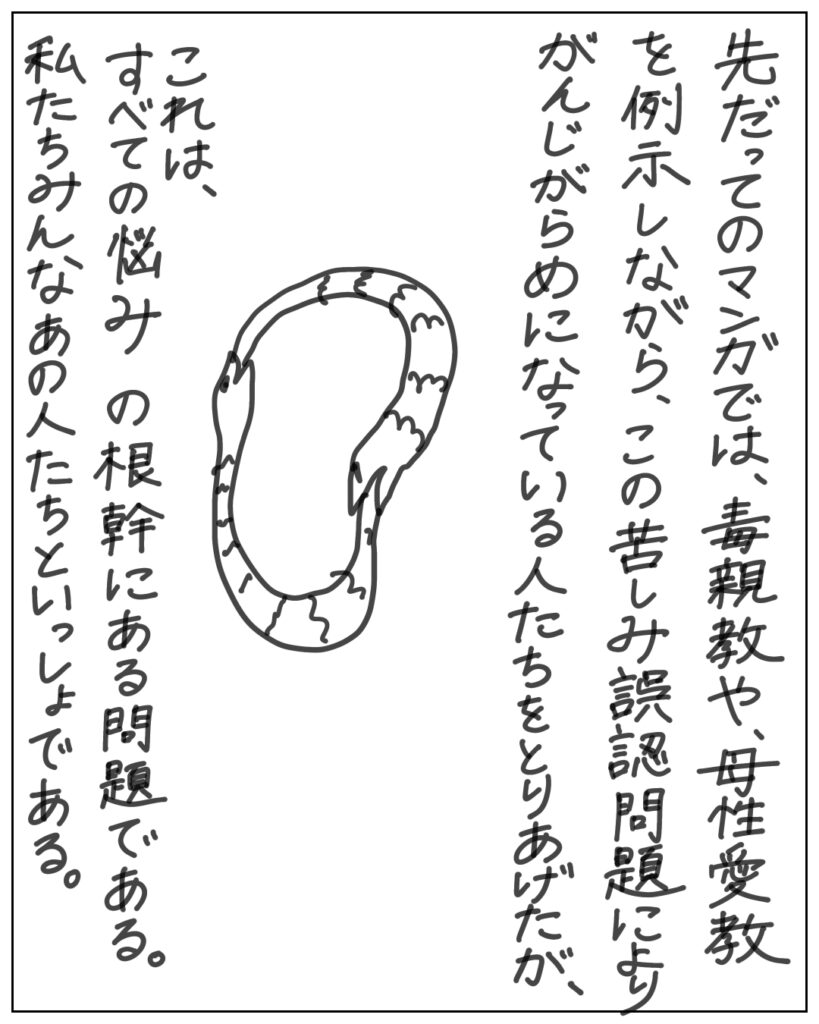 先だってのマンガでは、毒親教や、母性愛教
を例示しながら、この苦しみ誤認問題により
がんじがらめになっている人たちをとりあげたが、
これは、
すべての悩み の根幹にある問題である。
私たちみんなあの人たちといっしょである。